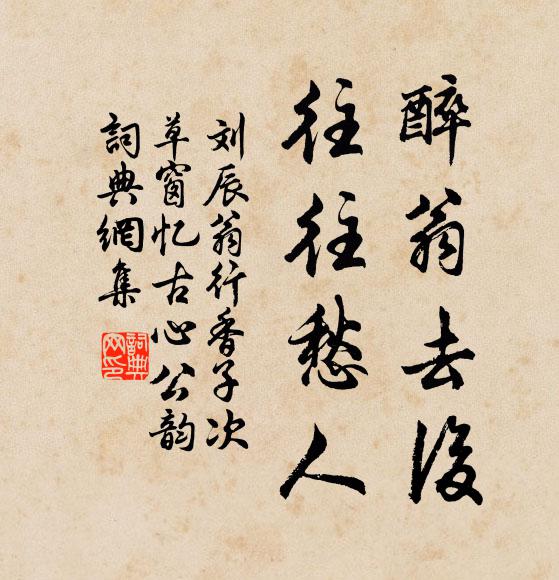 醉翁去後
往往愁人
刘辰翁行香子次
草窗忆古心公韵
詞典網集
詞典网印